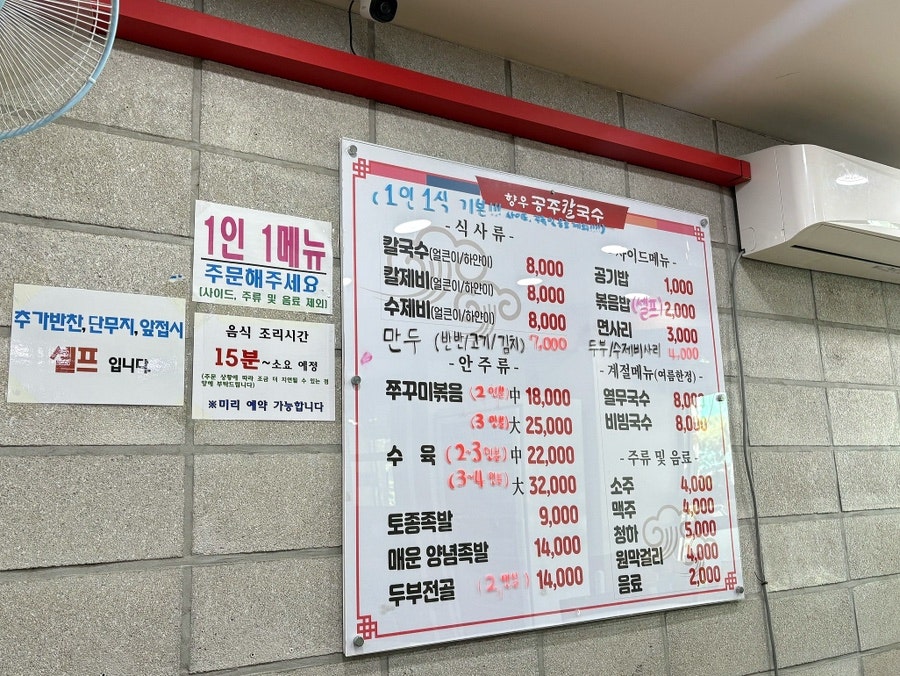 추가반찬, 단무지, 앞접시
셀프 입니다.
1인 1메뉴
주문해주세요
(사이드, 주류 및 음료 제외)
음식 조리시간
15분~소요 예정
(주문 상황에 따라 조금 더 지연될 수 있는 점
양해 부탁드립니다)
※미리 예약 가능합니다
향우 공주칼국수
(1인 1식 기본!!!
- 식사류 -
칼국수(얼큰이/하얀이) 8,000
칼제비(얼큰이/하얀이) 8,000
수제비(얼큰이/하얀이) 8,000
만두 (반반/고기/김치) 7,000
- 안주류 -
쭈꾸미볶음 (2인분) 中 18,000
(3인분) 大 25,000
수육 (2-3인분) 中 22,000
(3~4인분) 大 32,000
토종족발 9,000
매운 양념족발 14,000
두부전골 (2인분) 14,000
사이드메뉴 -
공기밥 1,000
볶음밥(셀프) 2,000
면사리 3,000
두부/수제비사리 4,000
- 계절메뉴(여름한정) -
열무국수 8,000
비빔국수 8,000
- 주류 및 음료 -
소주 4,000
맥주 4,000
청하 5,000
원막걸리 4,000
음료 2,000